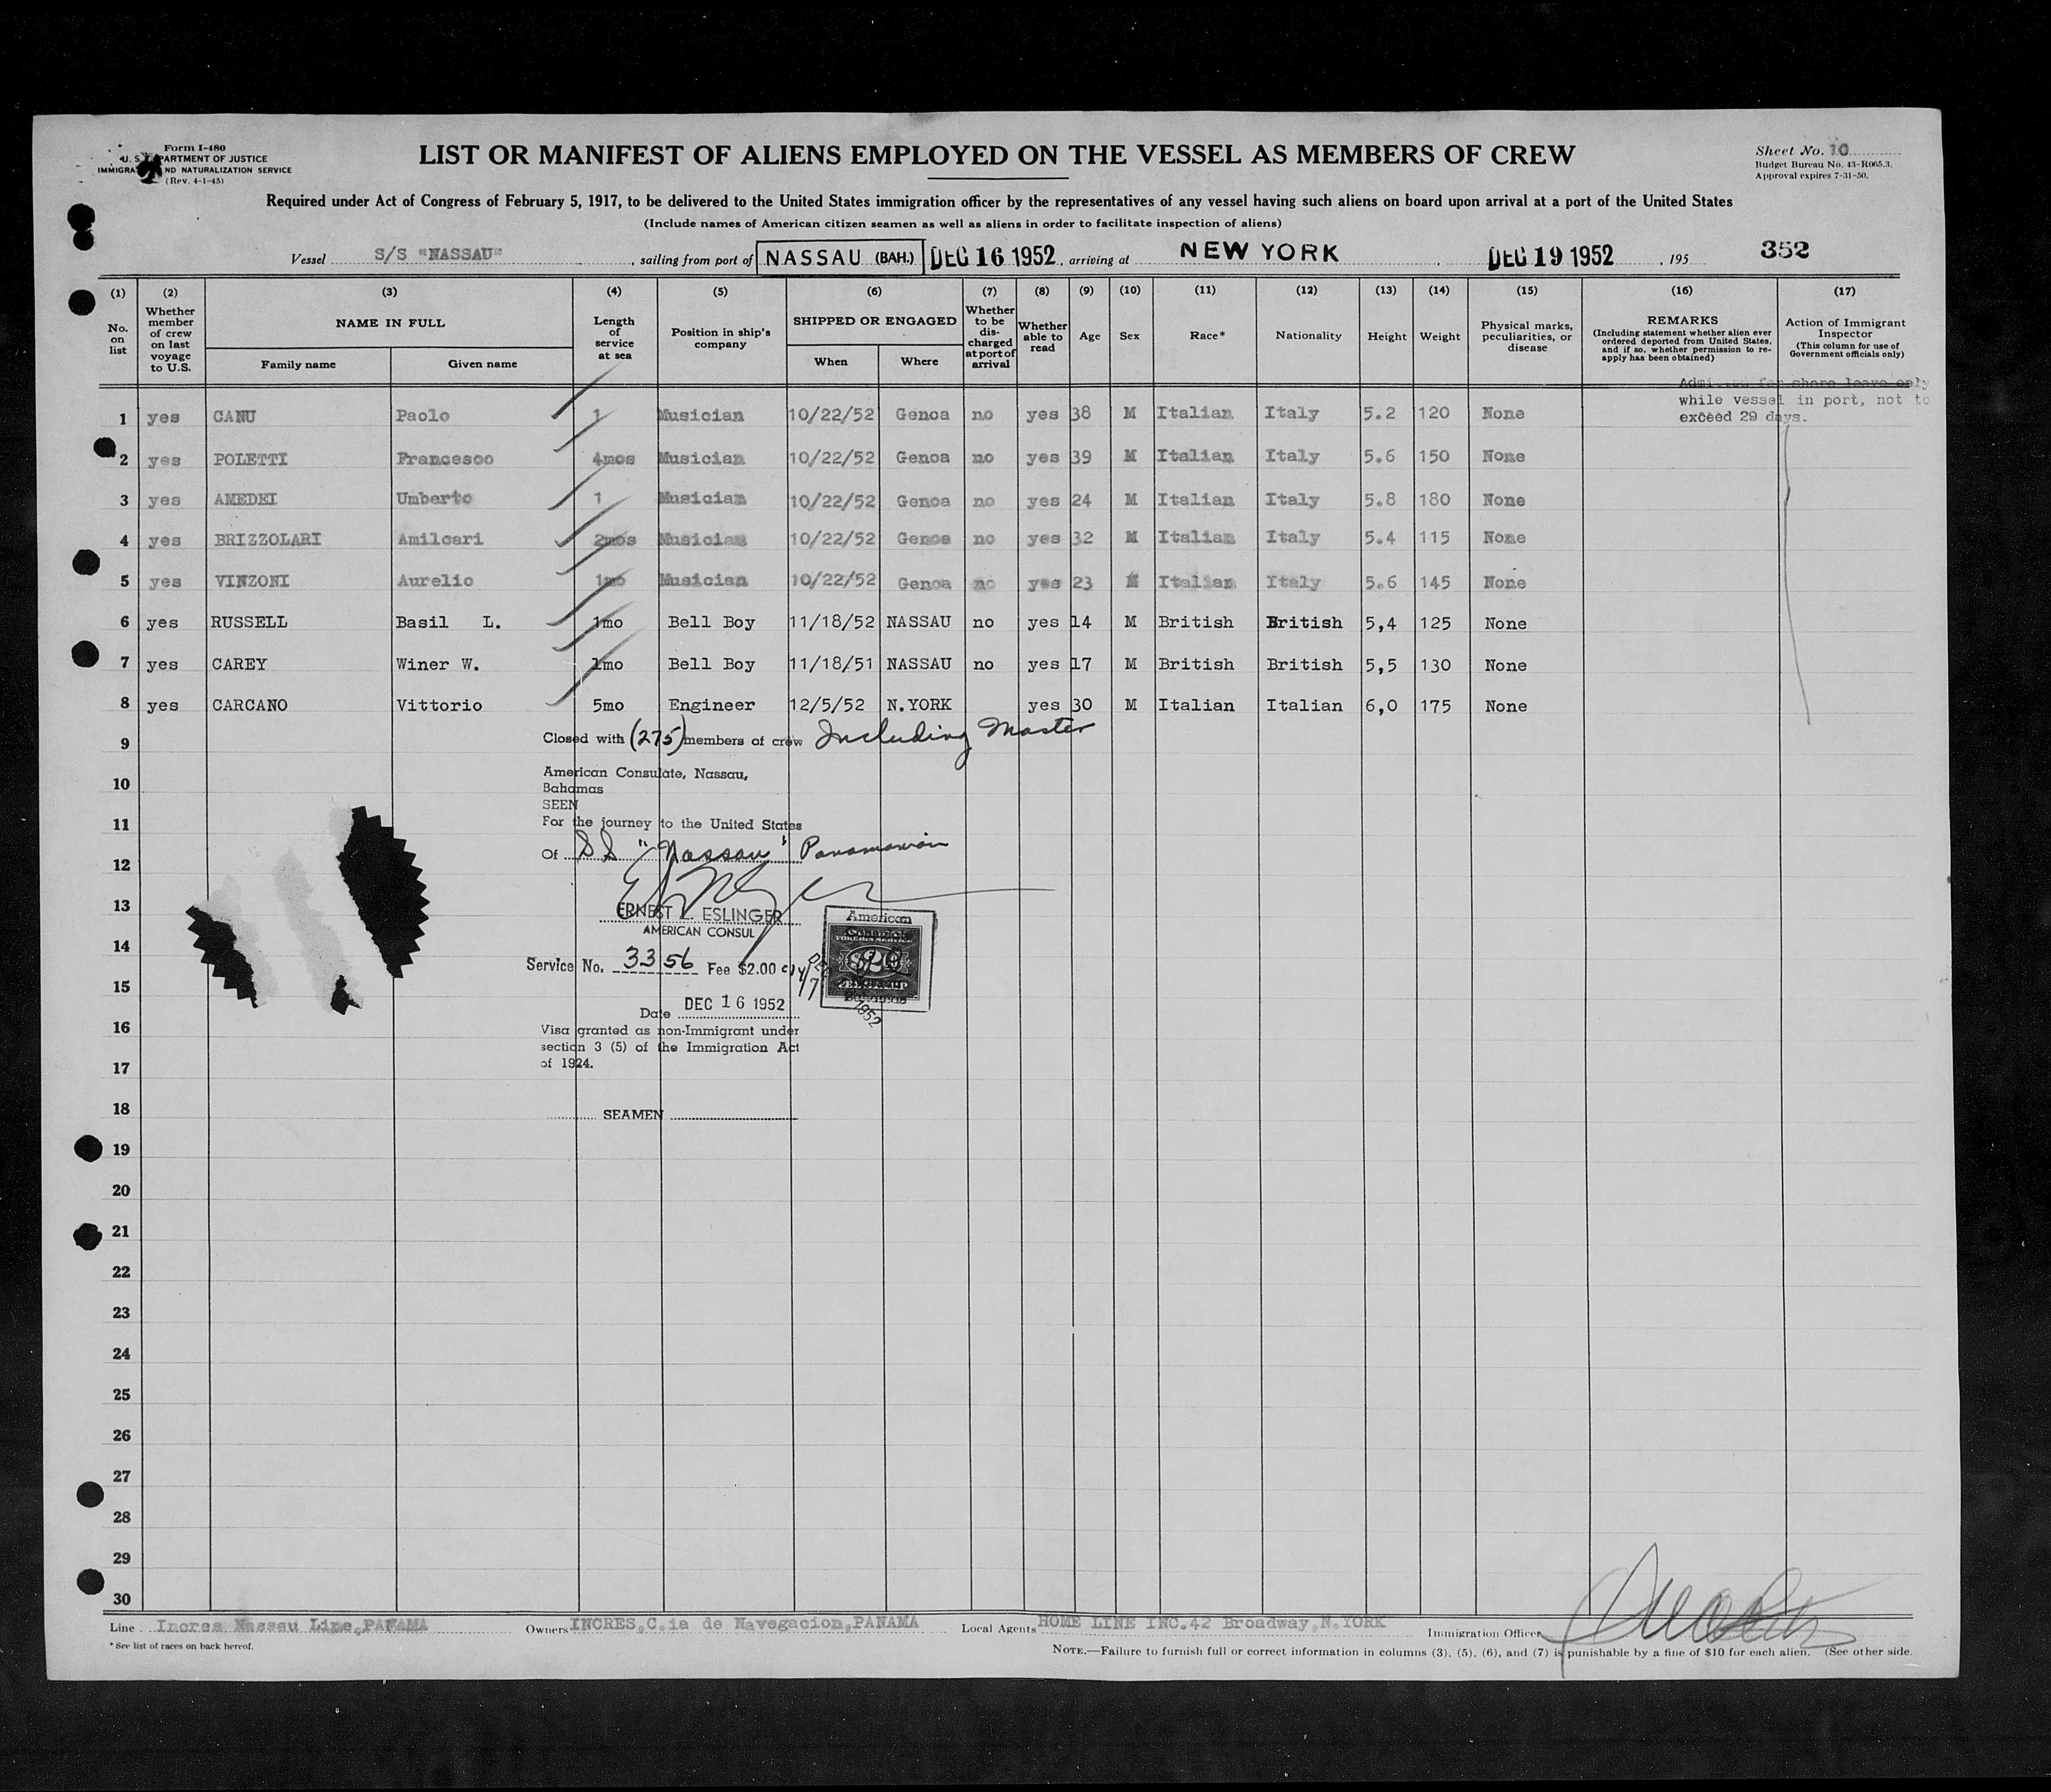 Form I-480
U. S. DEPARTMENT OF JUSTICE
IMMIGRATION AND NATURALIZATION SERVICE
(Rev. 4-1-45)
LIST OR MANIFEST OF ALIENS EMPLOYED ON THE VESSEL AS MEMBERS OF CREW
Sheet No. 10
Budget Bureau No. 43-R065.3.
Approval expires 7-31-50.
Required under Act of Congress of February 5, 1917, to be delivered to the United States immigration officer by the representatives of any vessel having such aliens on board upon arrival at a port of the United States
(Include names of American citizen seamen as well as aliens in order to facilitate inspection of aliens)
Vessel S/S "NASSAU", sailing from port of NASSAU (BAH.) DEC 16 1952, arriving at NEW YORK, DEC 19 1952, 195 352
(1) (2) (3) (4) (5) (6) (7) (8) (9) (10) (11) (12) (13) (14) (15) (16) (17)
No. on list
Whether member of crew on last voyage to U.S.
NAME IN FULL
Family name Given name
Length of service at sea
Position in ship's company
SHIPPED OR ENGAGED
When Where
Whether to be discharged at port of arrival
Whether able to read
Age
Sex
Race*
Nationality
Height
Weight
Physical marks, peculiarities, or disease
REMARKS
(Including statement whether alien ever ordered deported from United States, and if so, whether permission to reapply has been obtained)
Action of Immigrant Inspector
(This column for use of Government officials only)
Admitted for shore leave only
while vessel in port, not to
exceed 29 days.
1 yes CANU Paolo 1 Musician 10/22/52 Genoa no yes 38 M Italian Italy 5.2 120 None
2 yes POLETTI Francesco 4mos Musician 10/22/52 Genoa no yes 39 M Italian Italy 5.6 150 None
3 yes AMEDEI Umberto 1 Musician 10/22/52 Genoa no yes 24 M Italian Italy 5.8 180 None
4 yes BRIZZOLARI Amilcari 2mos Musician 10/22/52 Genoa no yes 32 M Italian Italy 5.4 115 None
5 yes VINZONI Aurelio 1mo Musician 10/22/52 Genoa no yes 23 M Italian Italy 5.6 145 None
6 yes RUSSELL Basil L. 1mo Bell Boy 11/18/52 NASSAU no yes 14 M British British 5,4 125 None
7 yes CAREY Winer W. 1mo Bell Boy 11/18/51 NASSAU no yes 17 M British British 5,5 130 None
8 yes CARCANO Vittorio 5mo Engineer 12/5/52 N.YORK yes 30 M Italian Italian 6,0 175 None
9
Closed with (275) members of crew Including Master
10
American Consulate, Nassau,
Bahamas
SEEN
11
For the journey to the United States
12
Of SS "Nassau" Panamanian
13
ERNEST L. ESLINGER
AMERICAN CONSUL
American
Consulate
FOREIGN SERVICE
14
Service No. 3356 Fee $2.00
15
Nassau
Bahamas
Date DEC 16 1952
DEC 1952
16
Visa granted as non-Immigrant under
section 3 (5) of the Immigration Act
of 1924.
17
18
SEAMEN
19
20
21
22
23
24
25
26
27
28
29
30
Line Incres Nassau Line,PANAMA Owners INCRES,C.ia de Navegacion,PANAMA Local Agents HOME LINE INC.42 Broadway,N.YORK Immigration Officer
* See list of races on back hereof.
NOTE.—Failure to furnish full or correct information in columns (3), (5), (6), and (7) is punishable by a fine of $10 for each alien. (See other side.